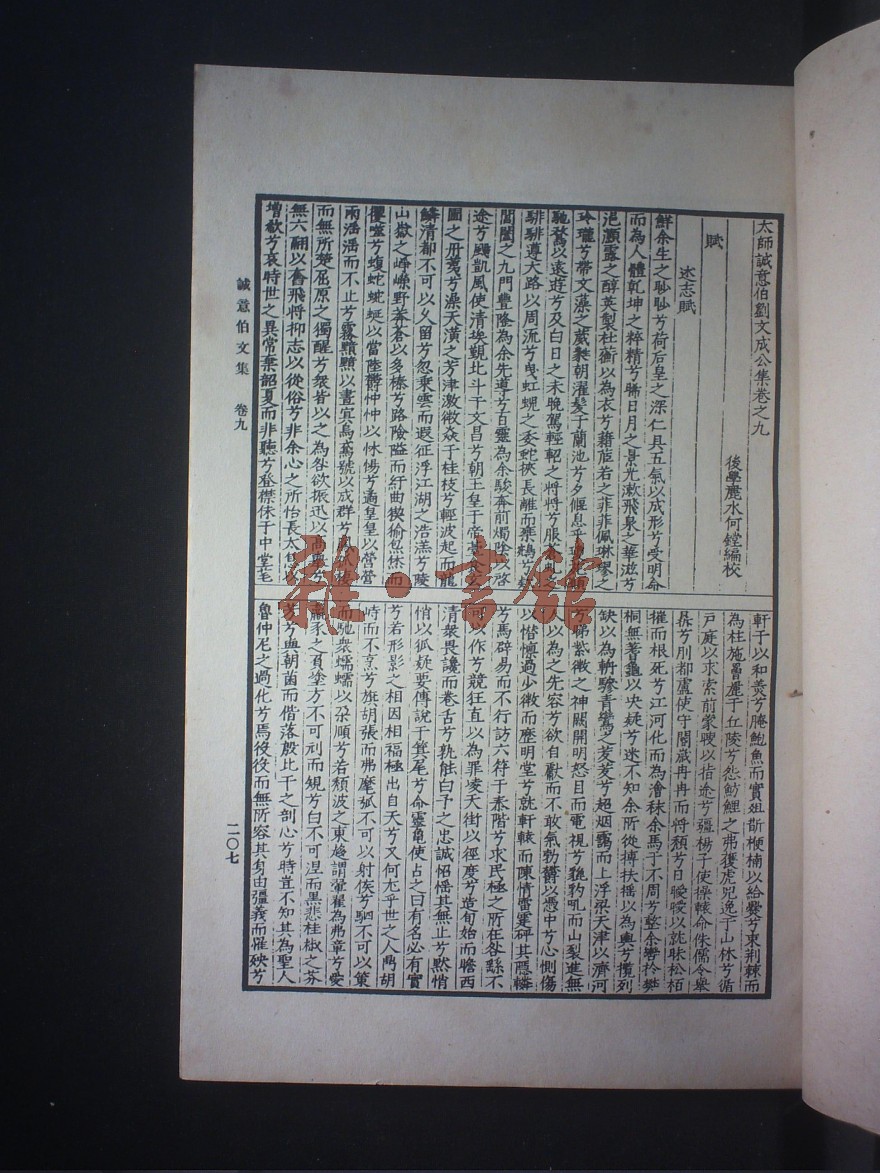 太師誠意伯劉文成公集卷之九
後學麗水何鏜編校
賦
述志賦
鮮余生之眇眇兮荷后皇之深仁具五氣以成形兮受明命
而為人體乾坤之粹精兮晞日月之景光漱飛泉之華滋兮
浥灝露之醇英製杜蘅以為衣兮藉茝若之菲菲佩琳璆之
玲瓏兮帶文藻之葳蕤朝濯髮于蘭池兮夕偃息乎
馳騖以遠遊兮及白日之未晚駕輕軺之將將兮服
騑騑遵大路以周流兮曳虹蜺之委蛇挾長離而乘鶂兮
閶闔之九門豐隆為余先導兮百靈為余駿奔前燭陰以啓
途兮颺凱風使清埃覲北斗于文昌兮朝王皇于帝
圃之丹荑兮澡天潢之芳津激微焱于桂枝兮輕波起而龍
鱗清都不可以久留兮忽乘雲而遐征浮江湖之浩羔兮陵
山嶽之崢嶸野莽蒼以多榛兮路險隘而紆曲猰㺄怒烋而
偃蹇兮蝮蛇蜿蜒以當陸鬱忡忡以怵惕兮遹皇皇以營營
雨滛滛而不止兮霧黯黯以晝宜烏鳶號以成群兮
而無所楚屈原之獨醒兮衆皆以之為咎欲振迅以高舉兮
無六翮以奮飛將抑志以從俗兮非余心之所怡長太息以
增欷兮哀時世之異常棄韶夏而非聽兮登襟佅于中堂毛
軒于以和羮兮腌鮑魚而實俎斮梗楠以給爨兮束荆棘而
為柱施罾䍡于丘陵兮怨魴鯉之弗獲虎兕逸于山林兮循
戸庭以求索前蒙瞍以指途兮彊楊子使操轅命侏儒令舉
鼎兮刖都盧使守閽歲冉冉而將頹兮日曖曖以就眛松栢
摧而根死兮江河化而為澮秣余馬于不周兮整余轡於
桐無蓍龜以决疑兮迷不知余所從摶扶摇以為輿兮攬列
缺以為旂驂青鸞之芰芰兮超烟靄而上浮梁天津以濟河
兮睇紫微之神闕開明怒目而電視兮豹吼而山裂進無
以為之先容兮欲自獻而不敢氣勃鬱以憑中兮心惻傷
以憯懍過少微而歷明堂兮就軒轅而陳情雷霆砰其隱轔
兮馬辟易而不行訪六符于泰階兮求民極之所在咎繇不
可以作兮競狂直以為罪凌天街以徑度兮造旬始而瞻西
清衆畏讒而巻舌兮孰能白予之忠誠招摇其無止兮黙悄
悄以狐疑要傳說于箕尾兮命靈亀使占之曰有名必有實
兮若形影之相因相福極出自天兮又何尤乎世之人鳥胡
峙而不烹兮旗胡張而弗麾弧不可以射侯兮駟不可以策
而馳衆嬬蠕以朵順兮若頹波之東逝謂翬翟為弗章兮愛
豕之負塗方不可刓而規兮白不可涅而黑悲桂椒之芬
芳兮與朝菌而偕落殷比干之剖心兮時豈不知其為聖人
魯仲尼之過化兮馬役役而無所容其身由彊義而罹殃兮
誠意伯文集　卷九
二〇七
雜·書館